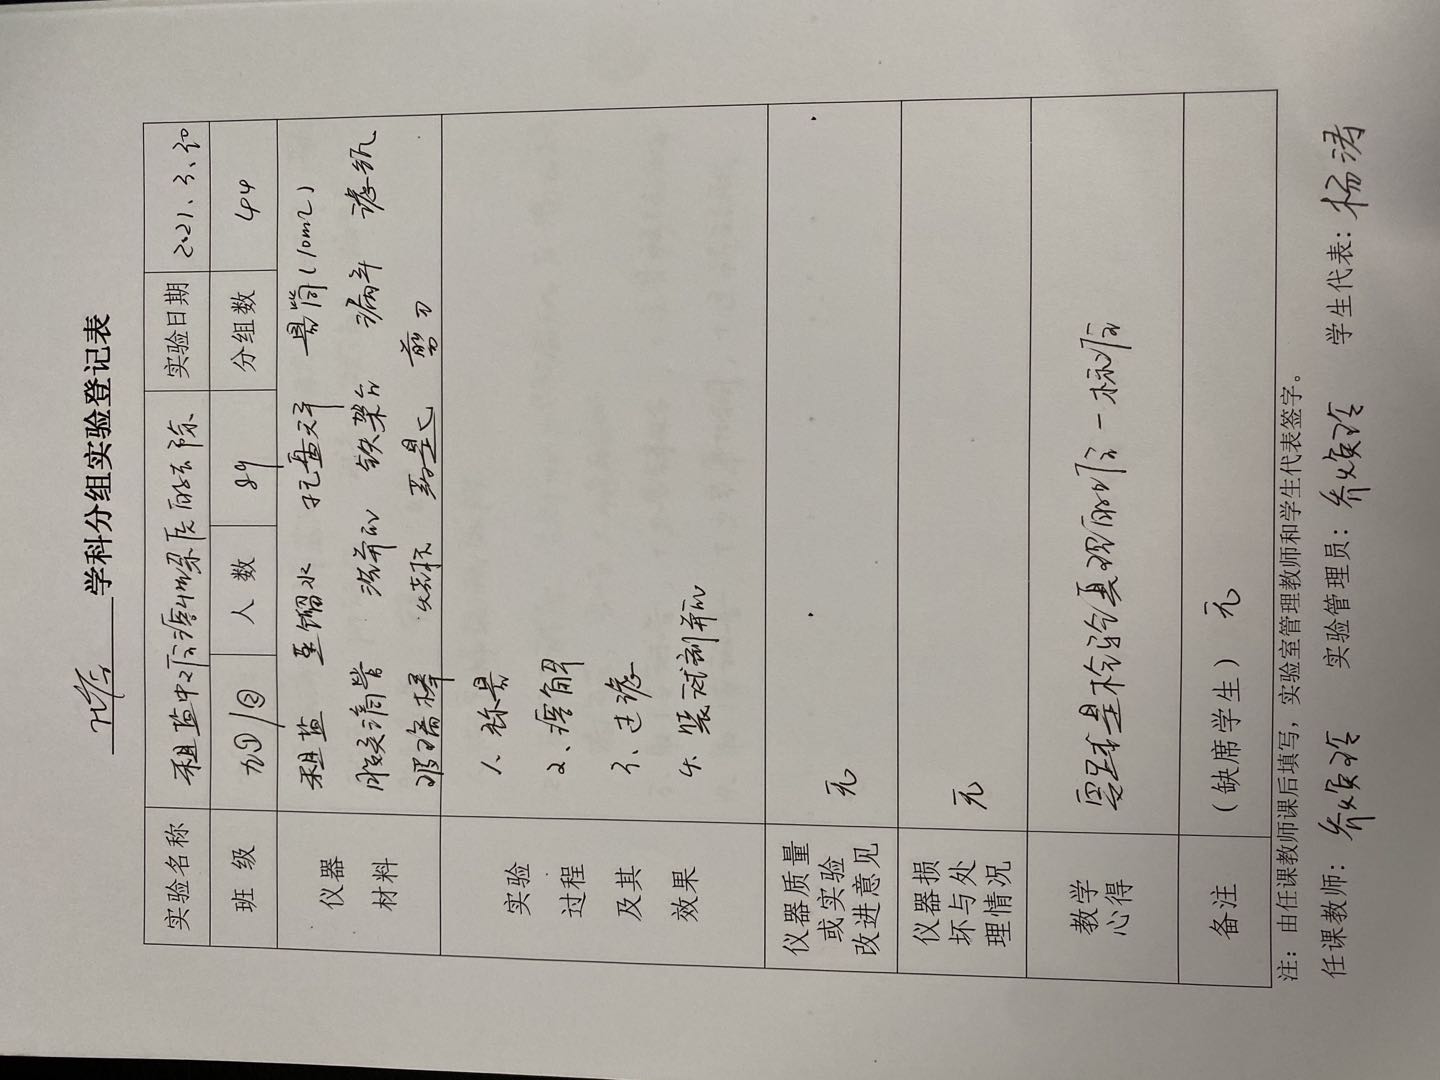 化学 学科分组实验登记表
实验名称 粗盐中难溶性杂质的去除 实验日期 2021.3.30
班级 人数 89 分组数 44
仪器材料 粗盐 蒸馏水 托盘天平 量筒(10mL)
胶头滴管 铁架台 漏斗 滤纸
玻璃棒 烧杯 药匙 剪刀
实验过程及其效果 1、称量
2、溶解
3、过滤
4、装试剂瓶
仪器质量或实验改进意见 无
仪器损坏与处理情况 无
教学心得 实践是检验真理的唯一标准
备注 (缺席学生) 无
注：由任课教师课后填写，实验室管理教师和学生代表签字。
任课教师： 实验管理员： 学生代表：杨涛